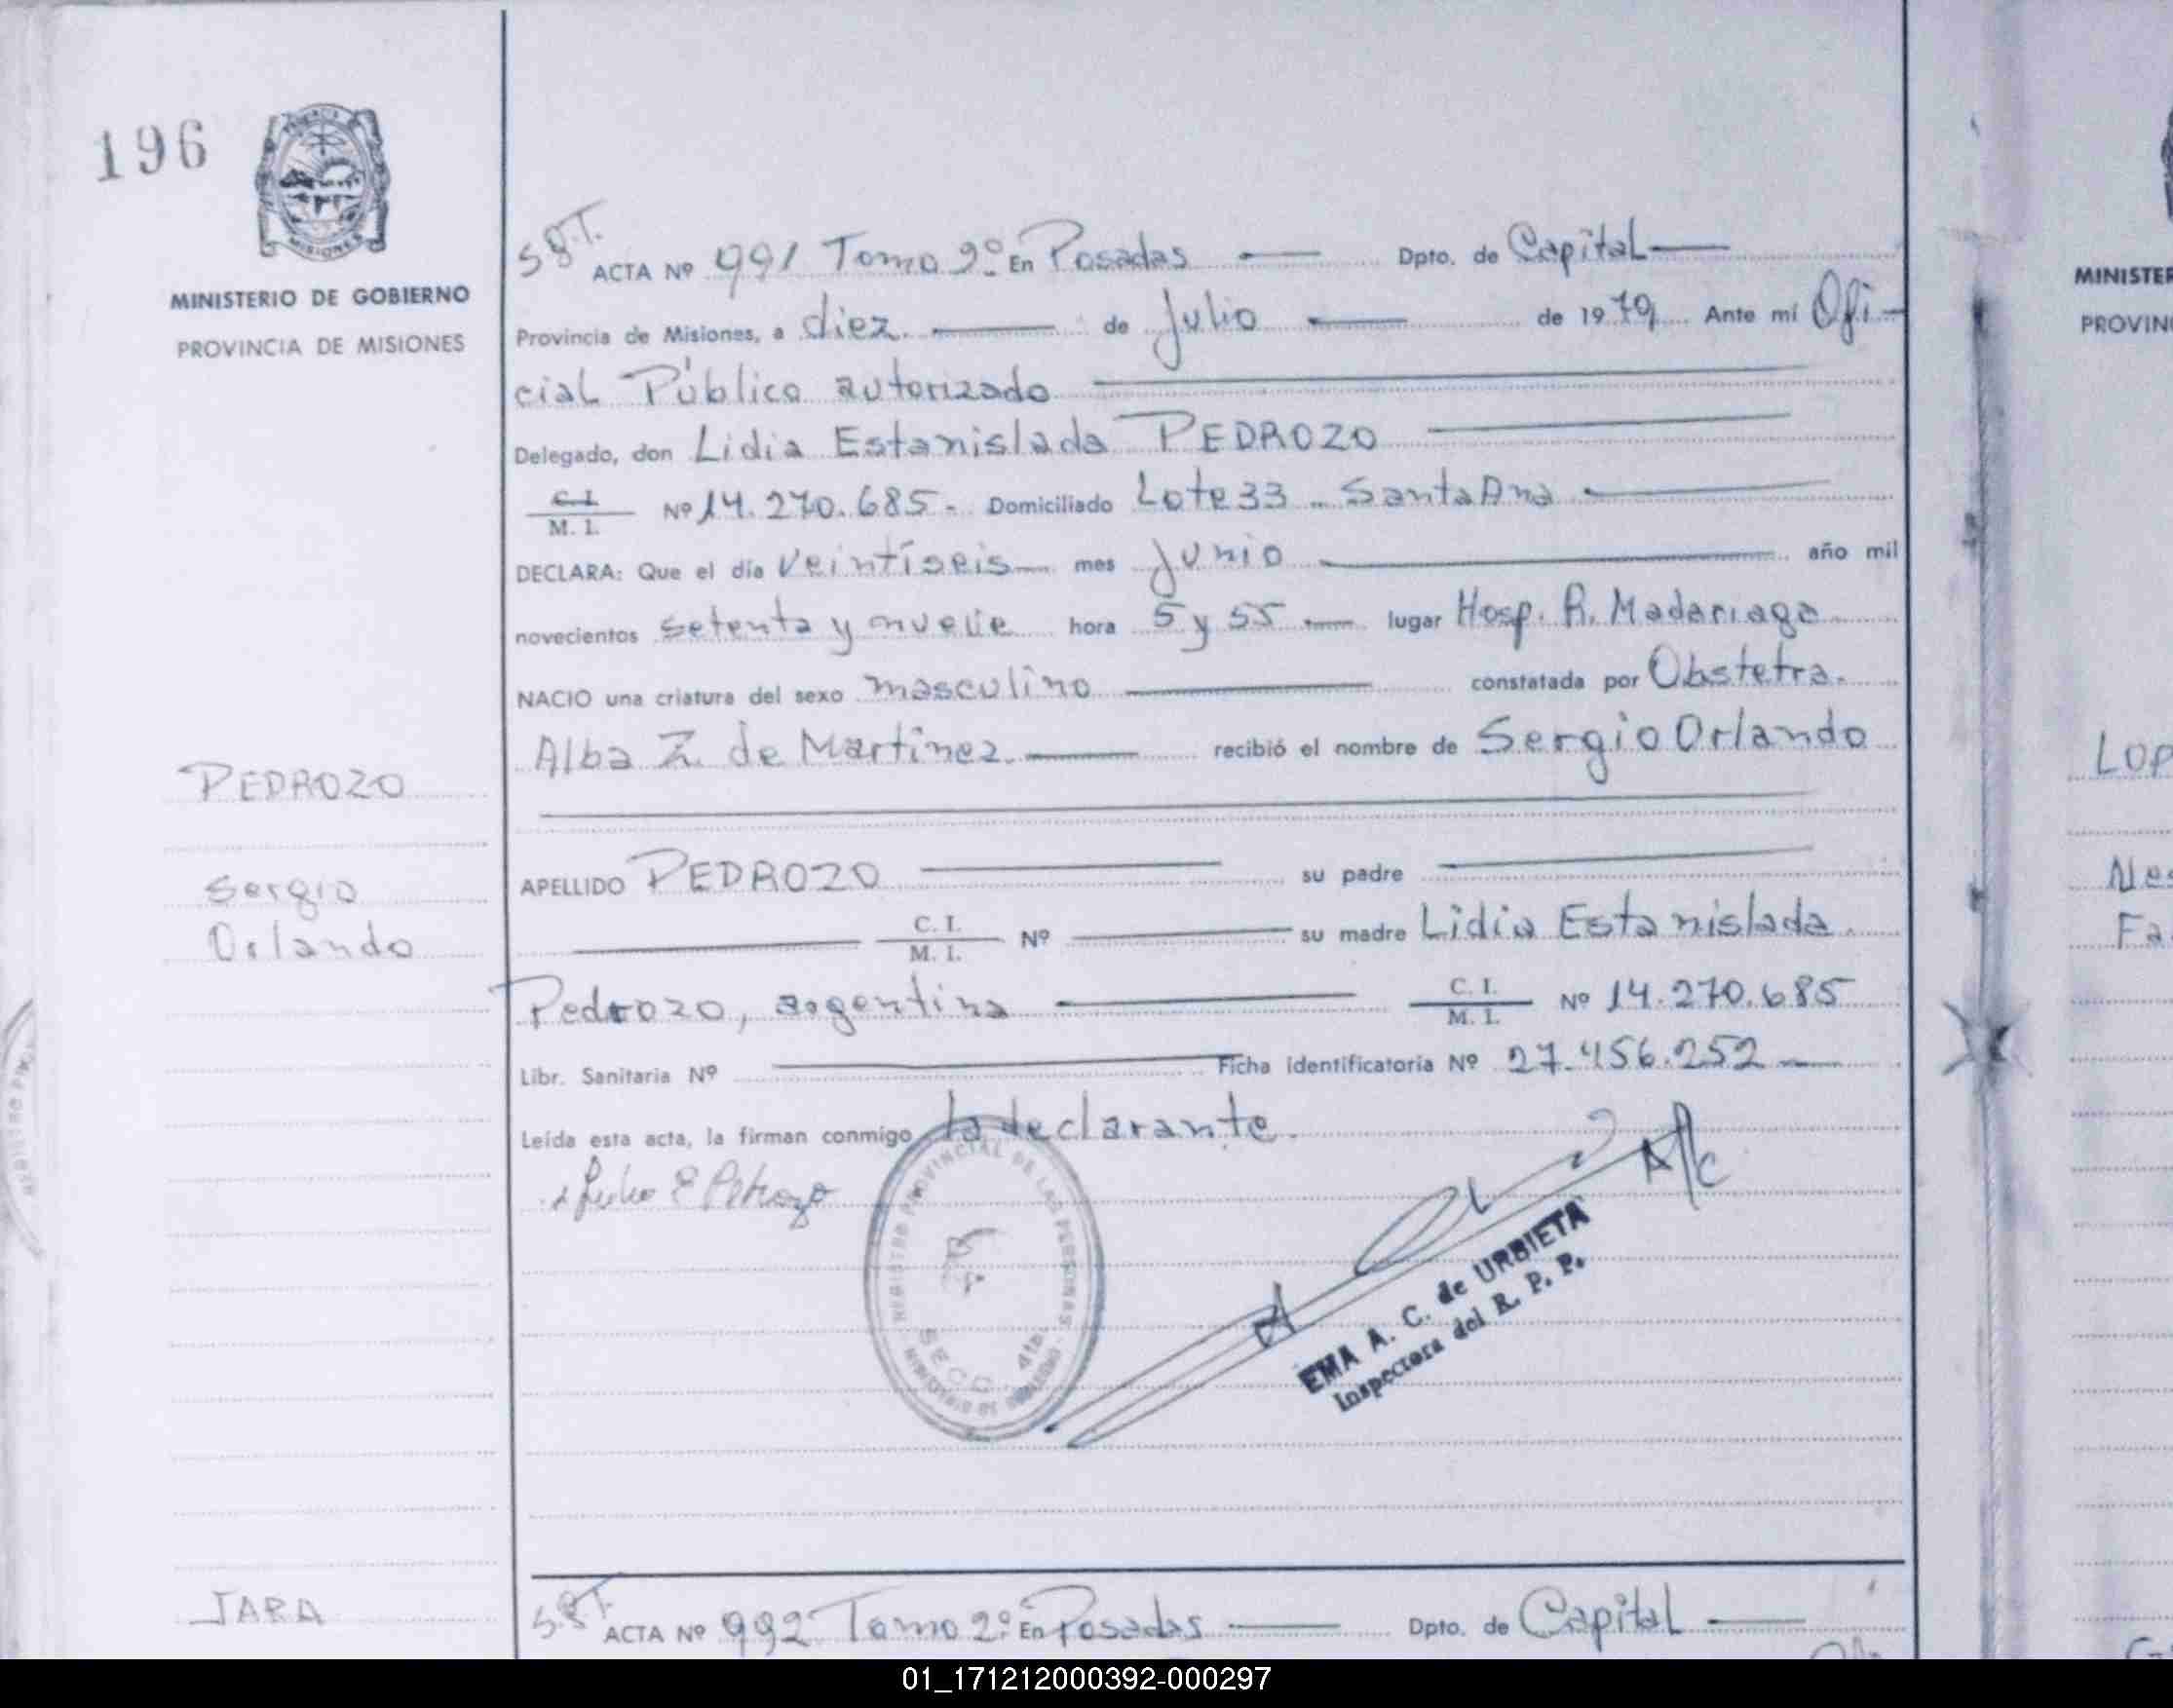 196
MISIONES
MINISTERIO DE GOBIERNO
PROVINCIA DE MISIONES
ACTA Nº 991 Tomo 2º En Posadas Dpto. de Capital
Provincia de Misiones, a diez de Julio de 1979 Ante mí Ofi-
cial Público autorizado
Delegado, don Lidia Estanislada PEDROZO
C. I.
M. I. Nº 14.270.685 - Domiciliado Lote 33 - Santa Ana
DECLARA: Que el día veintiseis mes junio año mil
novecientos setenta y nueve hora 5 y 55 lugar Hosp. R. Madariaga
NACIO una criatura del sexo masculino constatada por Obstetra.
Alba Z. de Martinez recibió el nombre de Sergio Orlando
APELLIDO PEDROZO su padre
C. I.
M. I. Nº su madre Lidia Estanislada
Pedrozo, argentina C. I.
M. I. Nº 14.270.685
Libr. Sanitaria Nº Ficha identificatoria Nº 27.456.252
Leída esta acta, la firman conmigo la declarante.
A/C
EMA A. C. de URBIETA
Inspectora del R. P. P.
REGISTRO PROVINCIAL DE LAS PERSONAS
SECC. 4ta.
PEDROZO
Sergio
Orlando
JARA
ACTA Nº 992 Tomo 2º En Posadas Dpto. de Capital
MINISTER
PROVIN
LOP
Nes
Fa
01_171212000392-000297